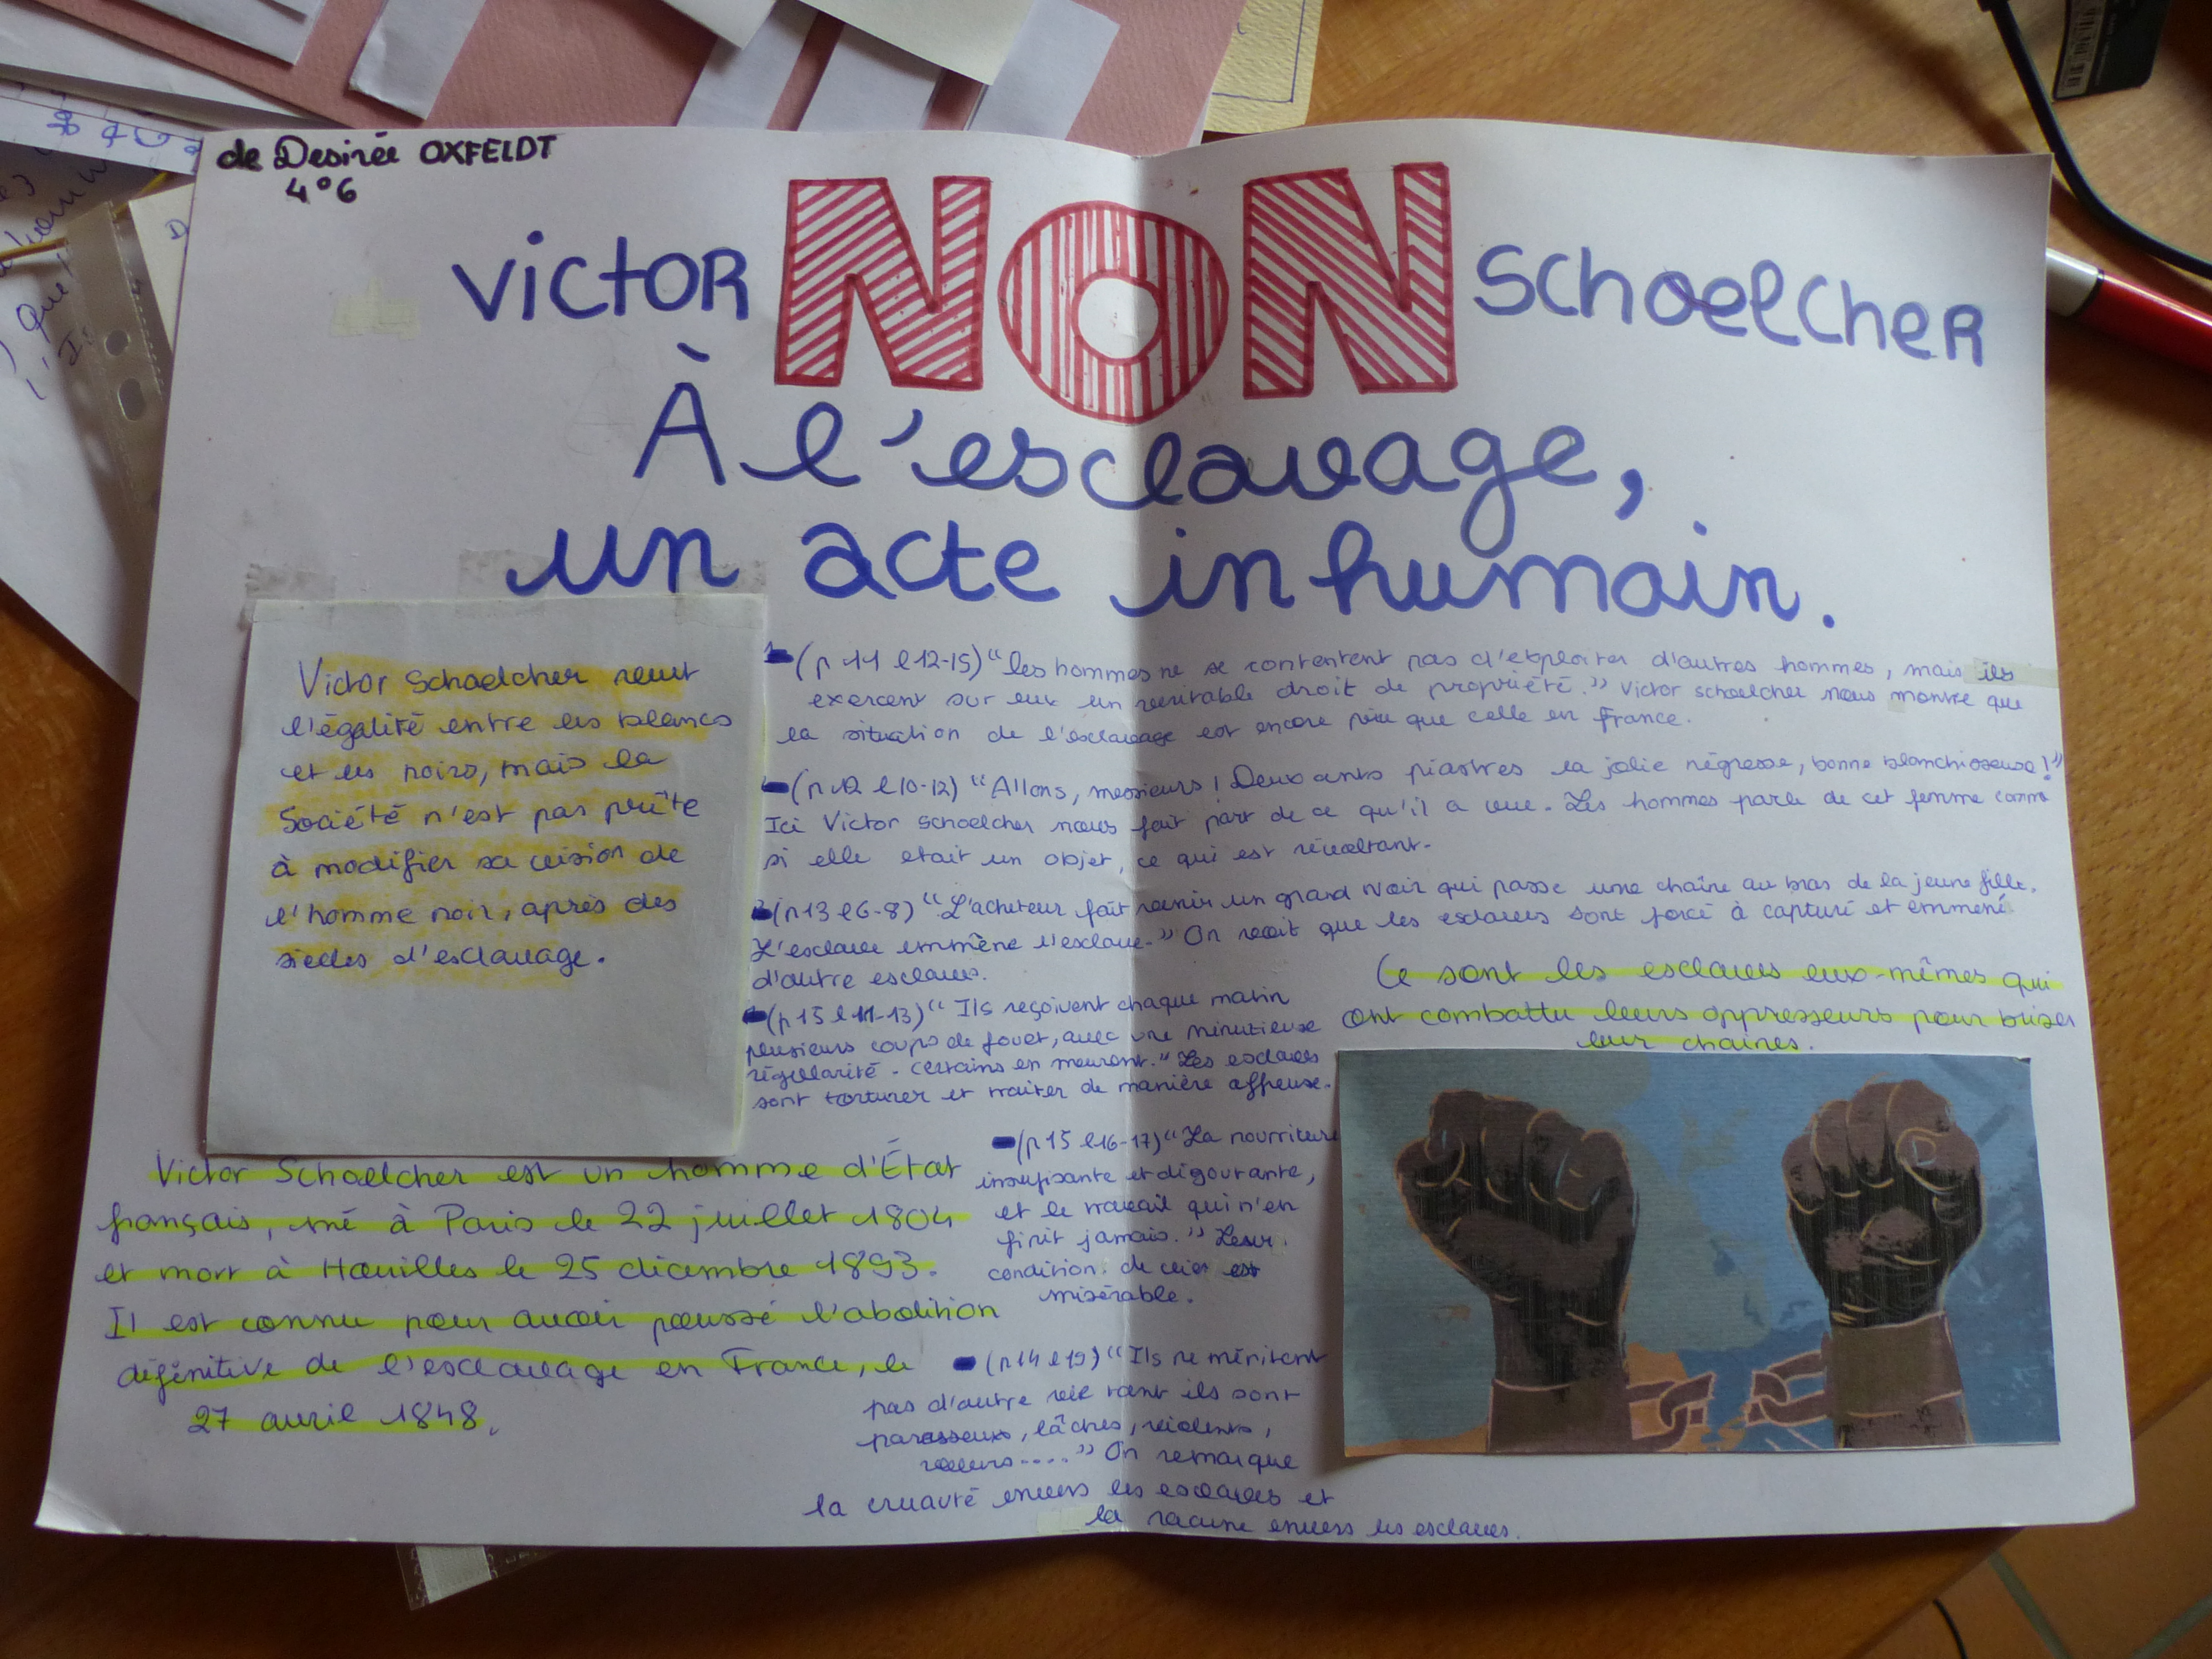 de Desirée OXFELDT
4°6
VICTOR NON SCHOELCHER
À l'esclavage,
un acte inhumain.
Victor Schoelcher veut
l'égalité entre les blancs
et les noirs, mais la
Société n'est pas prête
à modifier sa vision de
l'homme noir, après des
siecles d'esclavage.
(p 11 l 12-15) "les hommes ne se contentent pas d'exploiter d'autres hommes, mais ils
exercent sur eux un veritable droit de propriété." Victor schoelcher nous montre que
la situation de l'esclavage est encore pire que celle en France.
(p 12 l 10-12) "Allons, messieurs ! Deux cents piastres la jolie négresse, bonne blanchisseuse !"
Ici Victor Schoelcher nous fait part de ce qu'il a vue. Les hommes parle de cet femme comme
si elle etait un objet, ce qui est révoltant.
(p 13 l 6-8) "L'acheteur fait venir un grand Noir qui passe une chaîne au bras de la jeune fille.
L'esclave emmène l'esclave." On voit que les esclaves sont forcé à capturé et emmené
d'autre esclaves.
(p 15 l 11-13) "Ils reçoivent chaque matin
plusieurs coups de fouet, avec une minutieuse
régularité. Certains en meurent." Les esclaves
sont torturer et traiter de manière affreuse.
Ce sont les esclaves eux-mêmes qui
ont combattu leurs oppresseurs pour briser
leur chaines.
(p 15 l 16-17) "La nourriture
insufisante et dégoutante,
et le travail qui n'en
finit jamais." Leur
condition de vie est
misérable.
Victor Schoelcher est un homme d'État
français, né à Paris le 22 juillet 1804
et mort à Houilles le 25 décembre 1893.
Il est connu pour avoir poussé l'abolition
définitive de l'esclavage en France, le
27 avril 1848.
(p 14 l 19) "Ils ne méritent
pas d'autre vie tant ils sont
paresseux, lâches, violents,
voleurs...." On remarque
la cruauté envers les esclaves et
la envers les esclaves.